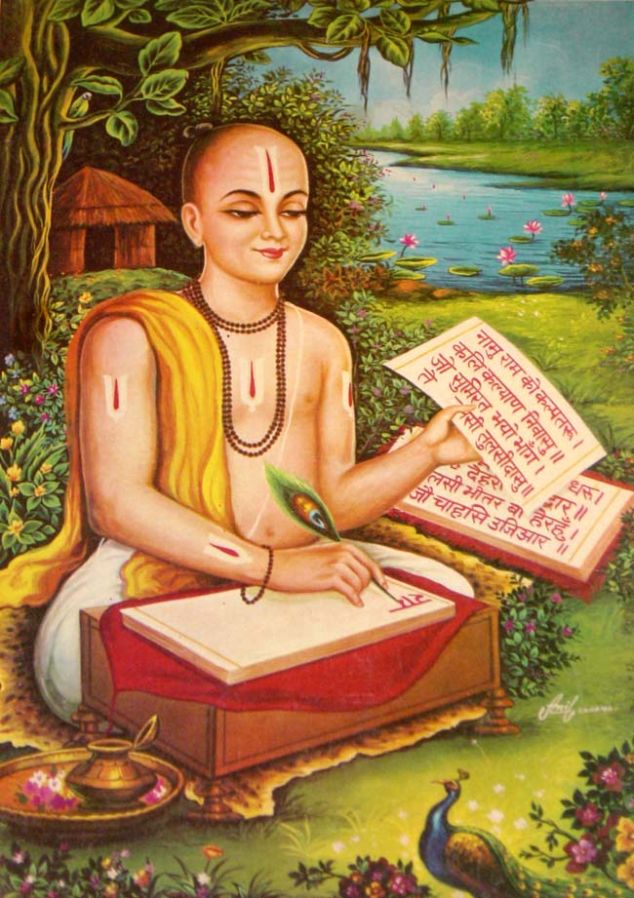 नामु राम को कल्पतरू।
कलि कल्याण निवासु॥
जौ सुमिरत भयो भाँग।
तें सी तुलसीदासु॥
धरू।
देहर ार॥
लसी भीतर बा हेरहुँ।
जौ चाहासि उजिआर॥
रा